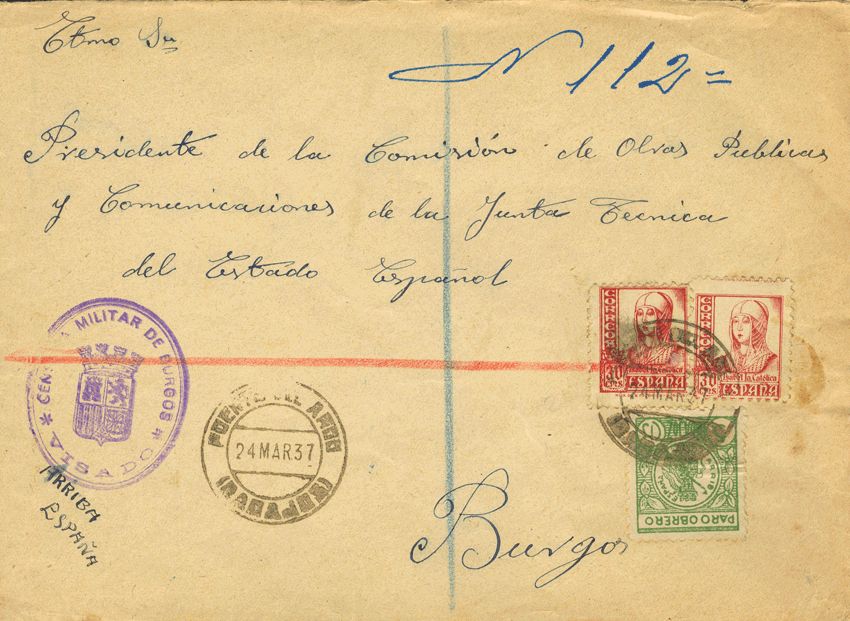 Etmo Sr
N 112=
Presidente de la Comisión de Obras Publicas
y Comunicaciones de la Junta Tecnica
del Estado Español
CORREOS
30 cts
ESPAÑA
CORREOS
Isabel la Católica
30 cts
ESPAÑA
MILITAR DE BURGOS
* VISADO *
ARRIBA
ESPAÑA
FUENTE DEL ARCO
24 MAR 37
(BADAJOZ)
24 MAR 37
PARO OBRERO
Burgos